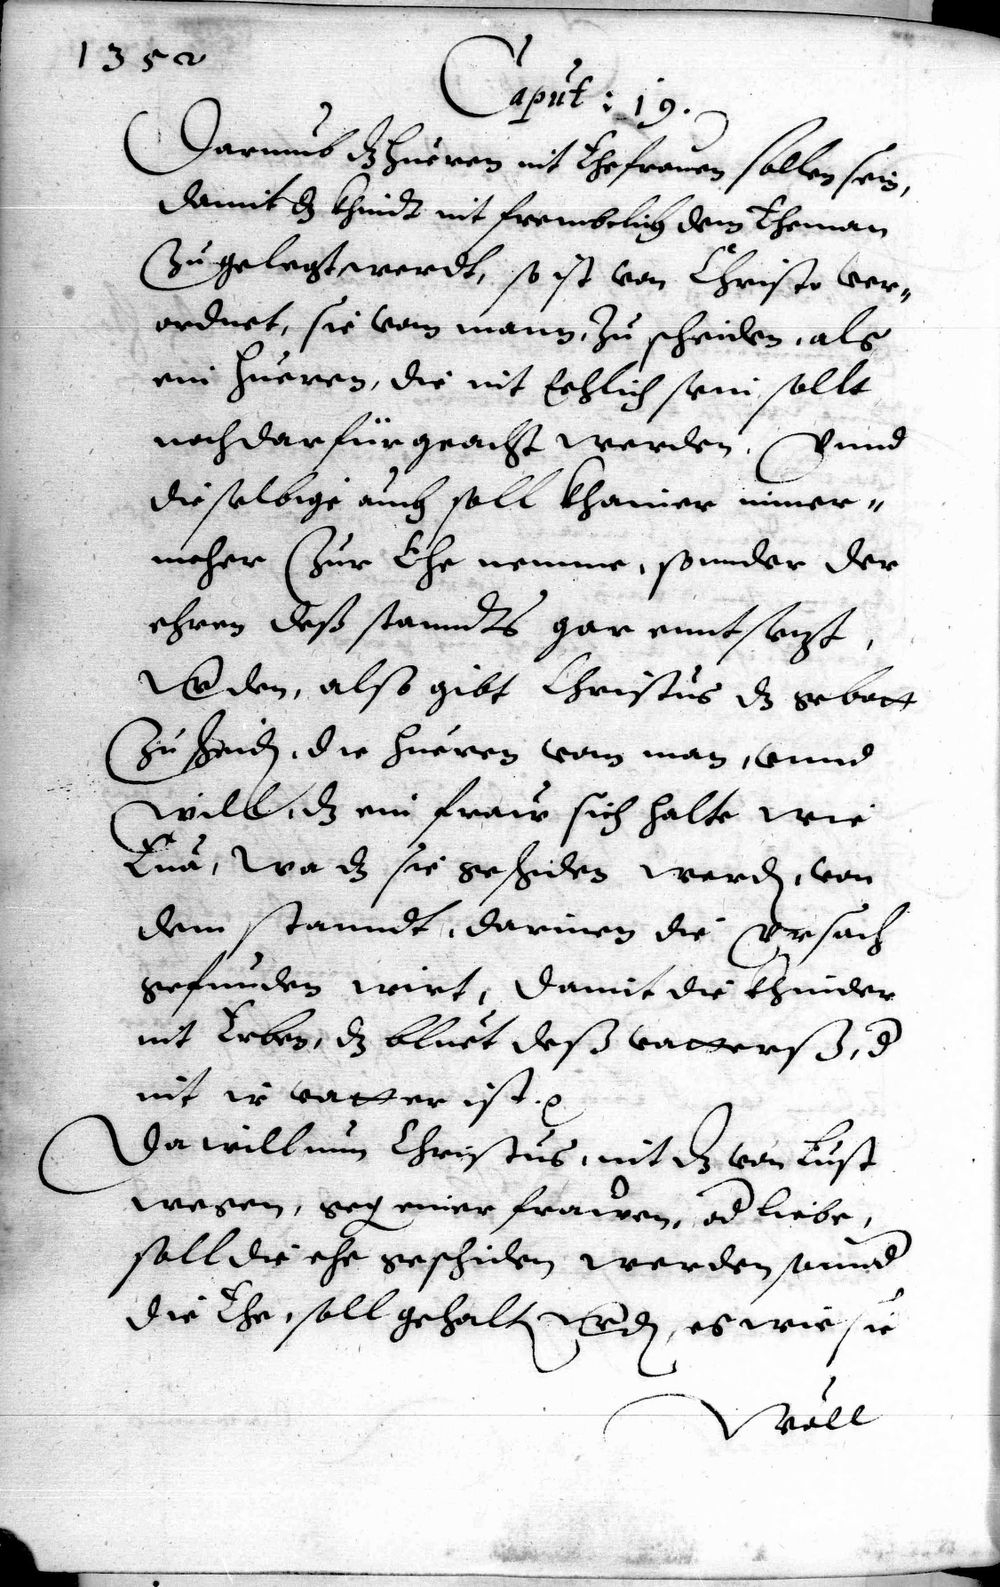 1352
Caput: 19.
Darumb dz Hueren nit Ehefrauen sollen sein,
damit dz khindt nit frembdling dem Eheman
Zu gelegt werdt, so ist von Christo ver=
ordnet, sie vom mann, Zu scheiden, als
ein Hueren, die nit Eehlich sein sollt
noch darfür geacht werden. Vnnd
die selbige auch soll khainer nimer=
meher Zur Ehe nemme, sonnder der
ehren deß stanndts gar enntsetzt,
werden, also gibt Christus dz gebott
Zu scheiden, die Hueren vom man, vnnd
will, dz ein frauw sich halte wie
Eua, wa dz sie geschiden werden, von
dem stanndt, darinen die Vrsach
gefunden wirt, damit die khinder
nit Erben, dz bluet deß vatterß, der
nit ir vatter ist.
Da will nun Christus, nit dz von Lust
wegen, gegen einer frauwen, oder liebe,
soll die ehe geschiden werden sonnder
die Ehe, soll gehalten werden, es wie sie
Wöll